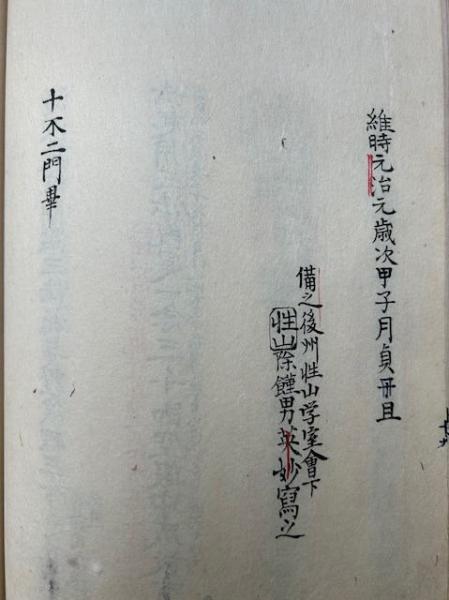 維時元治元歳次甲子月貞冊且
備之後州性山学室會下
性山除饉男英妙寫之
十不二門畢